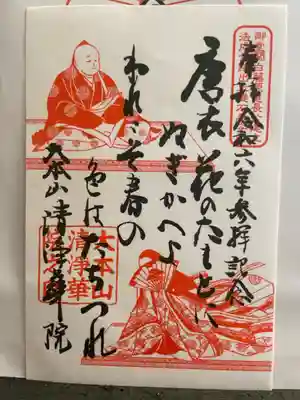 奉拝 令和六年参拝記念
唐衣花のたもとに
ぬぎかへよ
われこそ春の
色はたちつれ
大本山清浄華院
大本山
清浄華